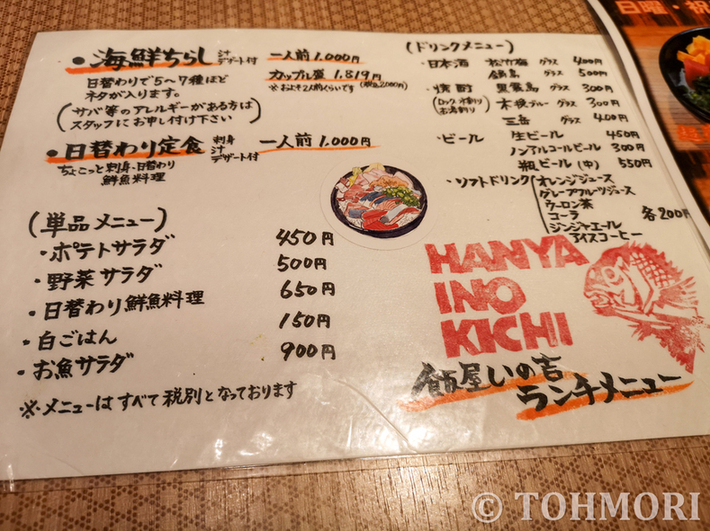 ・海鮮ちらし 汁 デザート付 一人前 1.000円
日替わりで5〜7種ほど
ネタが入ります。
カップル盛 1.819円 (税込2000円)
※およそ2人前くらいです
(サバ等のアレルギーがある方は
スタッフにお申し付け下さい)
・日替わり定食 刺身 汁 デザート付 一人前 1.000円
ちょこっと刺身・日替わり
鮮魚料理
(単品メニュー)
・ポテトサラダ 450円
・野菜サラダ 500円
・日替わり鮮魚料理 650円
・白ごはん 150円
・お魚サラダ 900円
※メニューはすべて税別となっております
(ドリンクメニュー)
・日本酒 松竹梅 グラス 400円
鍋島 グラス 500円
・焼酎 黒霧島 グラス 300円
(ロック・水割り お湯割り) 木挽ブルー グラス 300円
三岳 グラス 400円
・ビール 生ビール 450円
ノンアルコールビール 300円
瓶ビール(中) 550円
・ソフトドリンク オレンジジュース
グレープフルーツジュース
ウーロン茶
コーラ
ジンジャエール
アイスコーヒー
各200円
HANYA
INO
KICHI
飯屋いの吉
ランチメニュー
日曜・祝
© TOHMORI